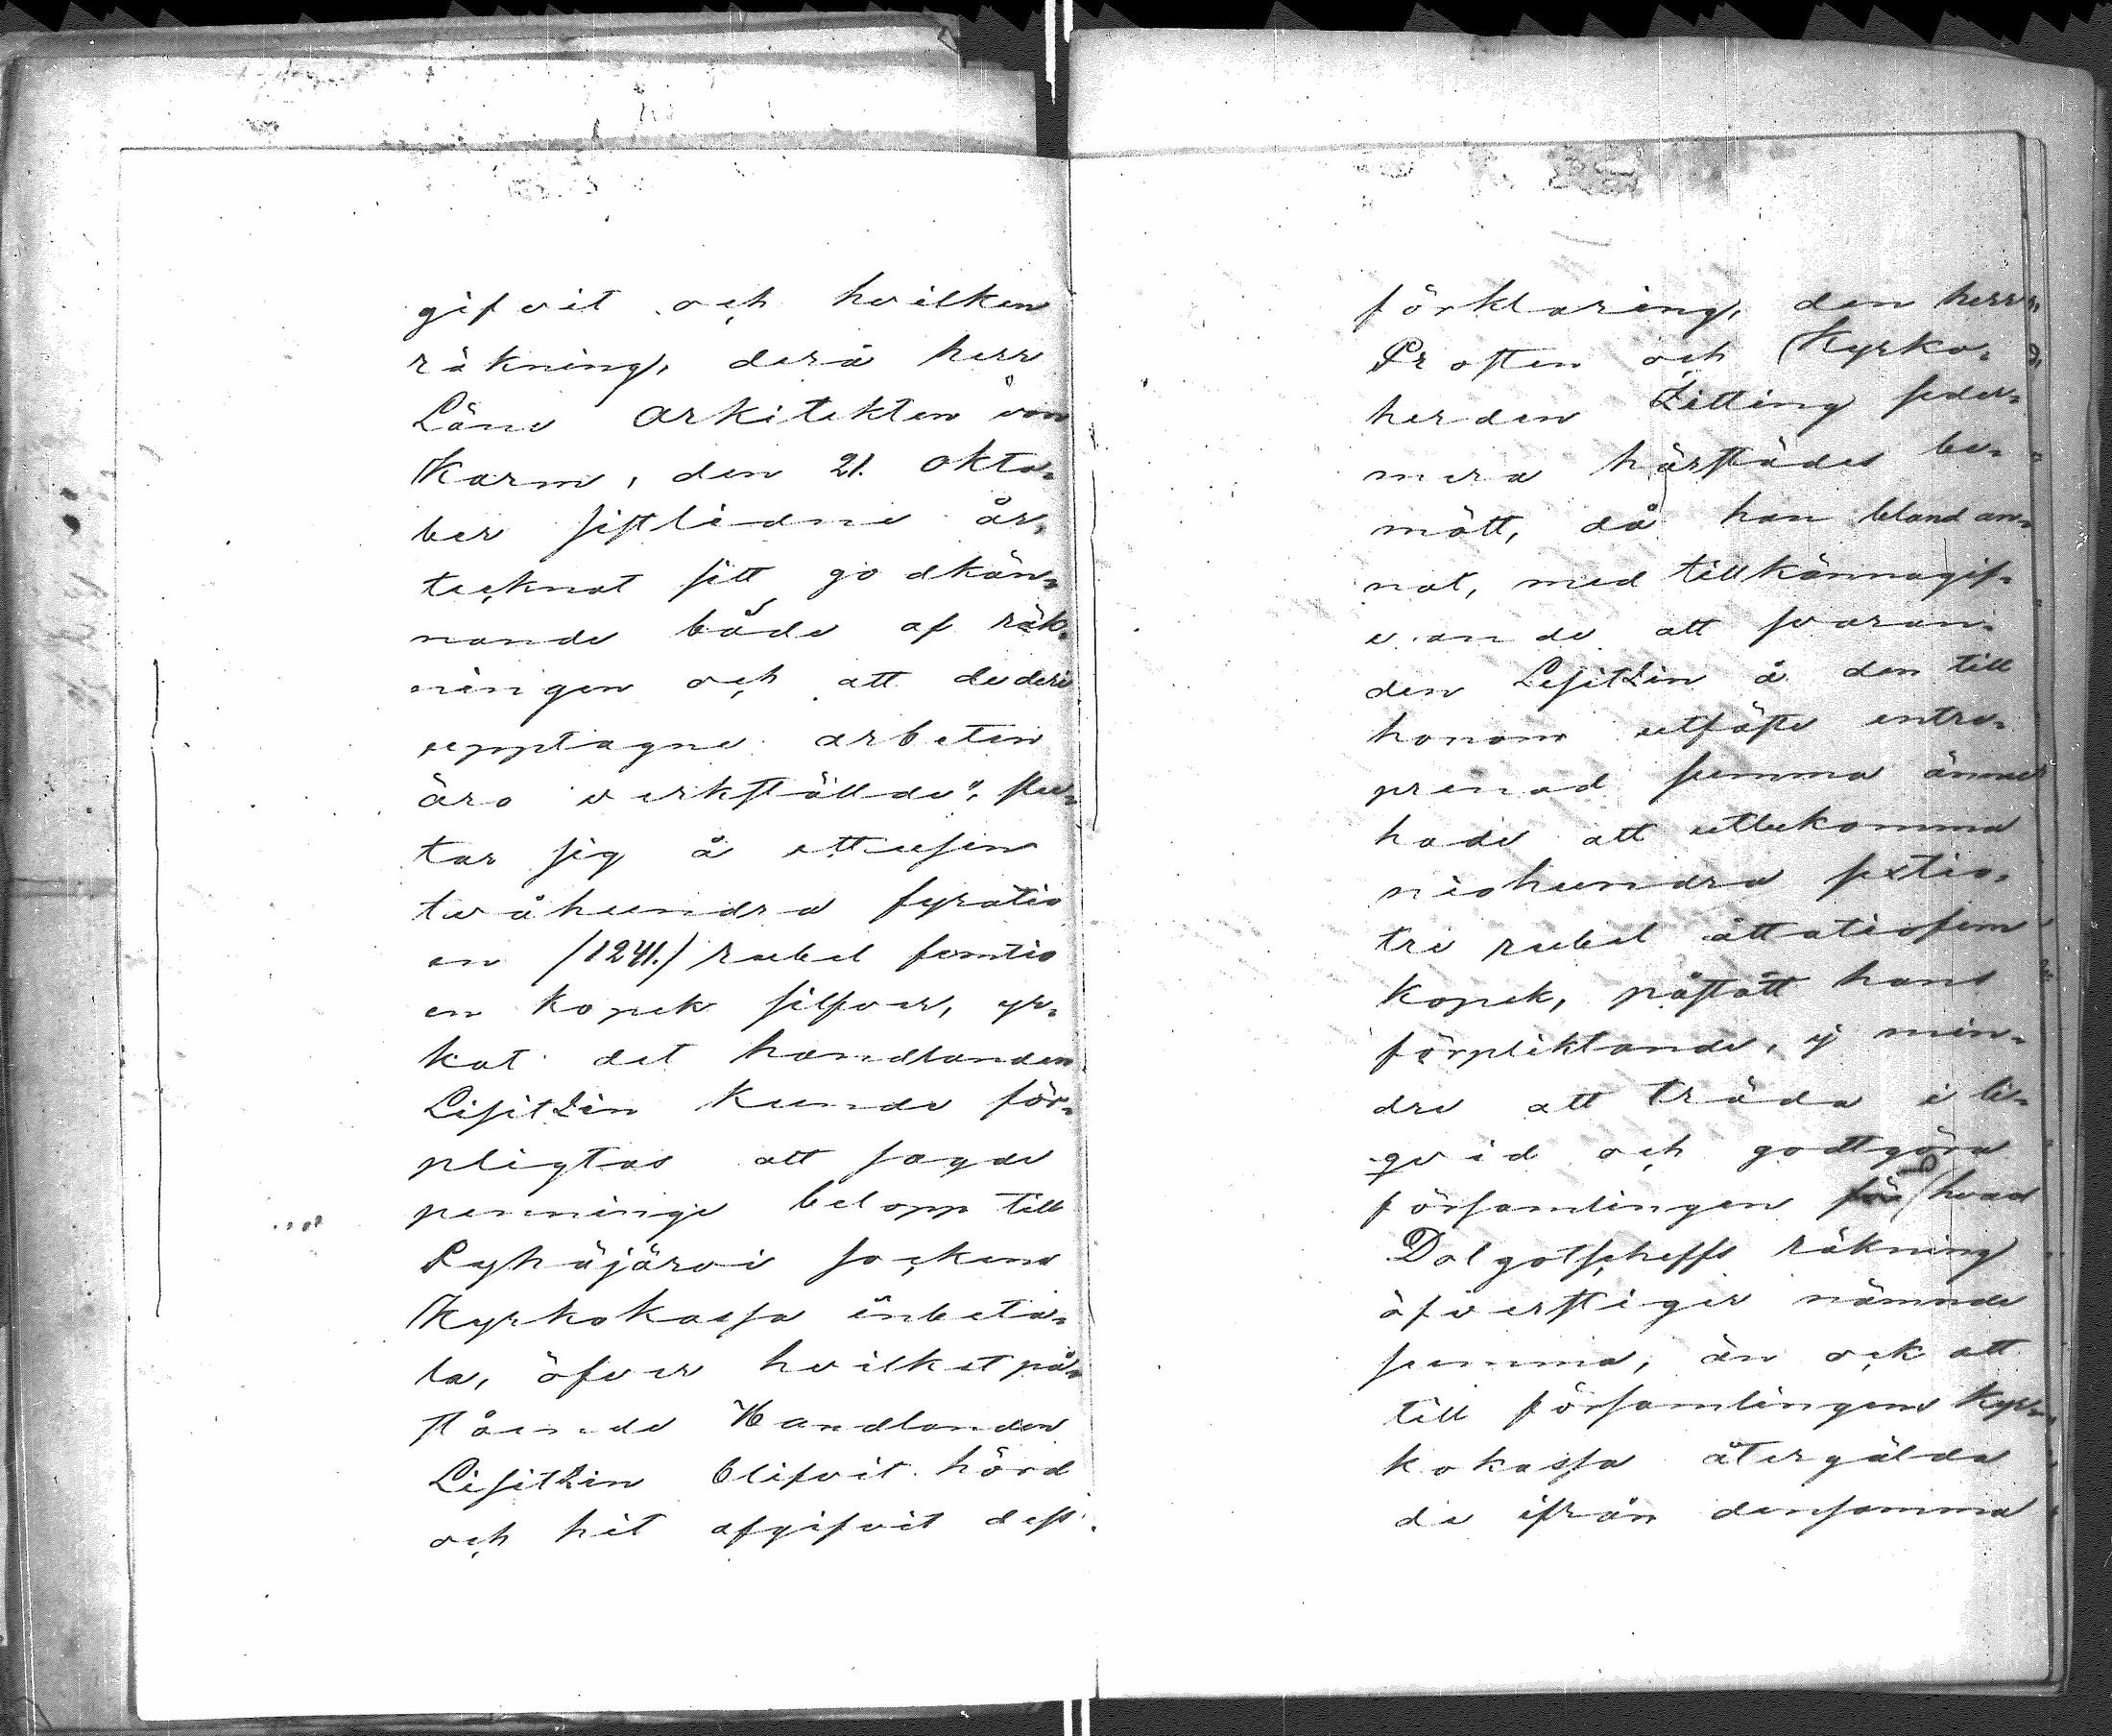 gifvit och hvilken
räkning, derå herr
Läns Arkitekten von
Karm, den 21. Okto-
ber sistlidne år,
tecknat sitt godkän-
nande både af räk-
ningen och att de deri
upptagne arbeten
äro verkställde", slu-
tar sig å ettusen
tvåhundra fyratio
en /1241./ rubel femtio
en kopek silfver, yr-
kat det handlanden
Lisitzin kunde för-
pligtas att sagde
penninge belopp till
Pyhäjärvi sockens
Kyrkokassa inbeta-
la, öfver hvilket på-
stående Handlanden
Lisitzin blifvit hörd
och hit afgifvit dess
förklaring, den herr
Prosten och Kyrko-
herden Zitting seder-
mera härstädes be-
mött, då han bland an-
nat, med tillkännagif-
vande att svaran-
den Lisitzin å den till
honom utfäste entre-
prenad summa ännu
hade att utbekomma
niohundra sextio-
tre rubel åttatiofem
kopek, påstått hans
förpliktande, ej min-
dre att träda i li-
qvid och godtgöra
församlingen hvad
Dolgotscheffs räkning
öfverstiger nämnde
summa, än ock att
till församlingens Kyr-
kokassa återgälda
de ifrån densamma